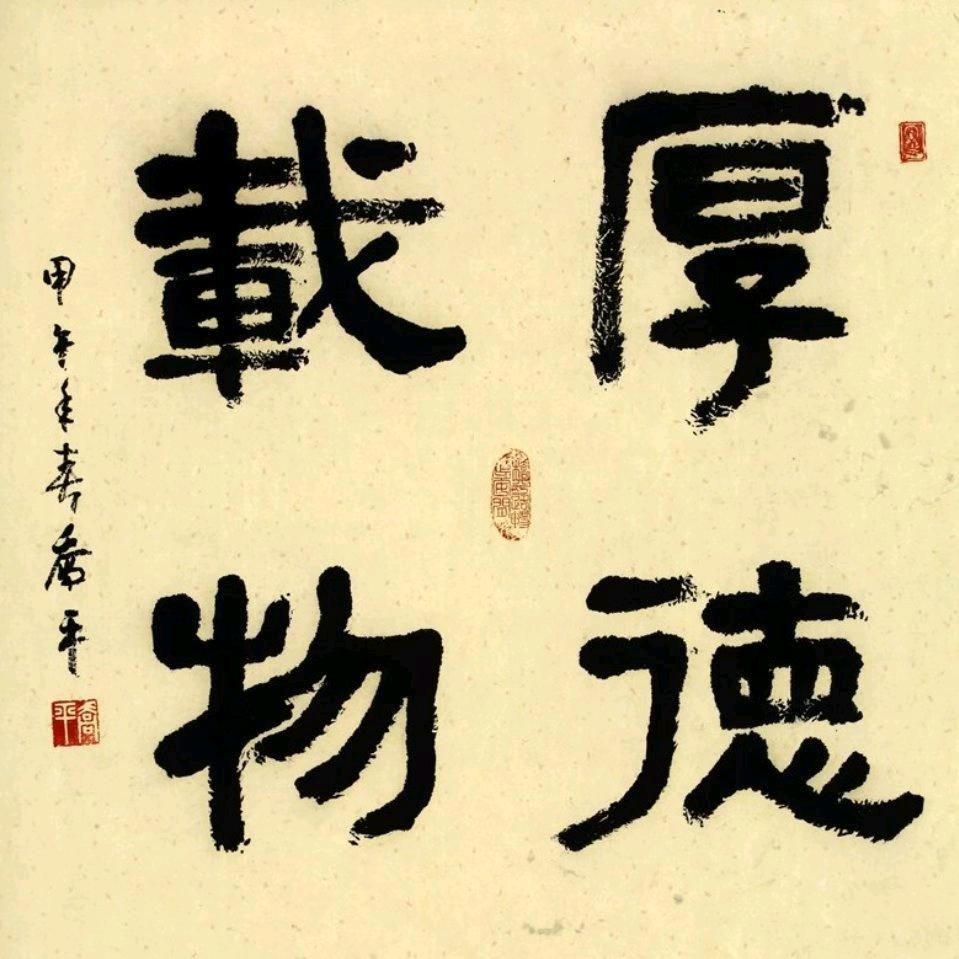 厚德
載物
甲午年春喬平